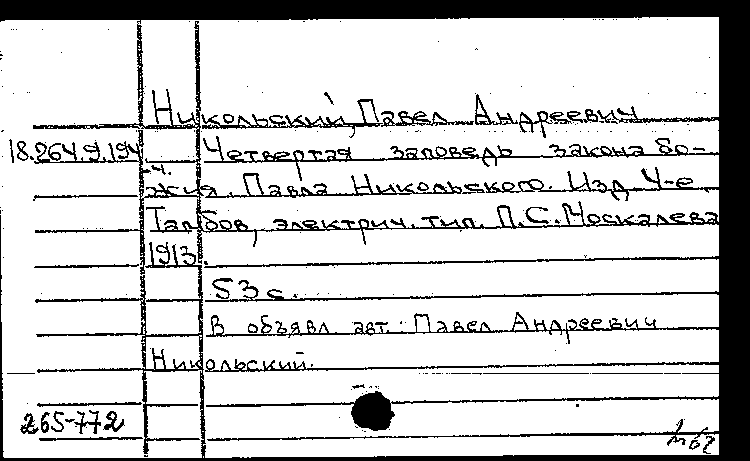 Никольский, Павел Андреевич
18.264.9.194 Четвертая заповедь закона бо-
жия. Павла Никольского. Изд. 4-е.
Тамбов, электрич. тип. П.С. Москалева
1913.
53 с.
В объявл. авт.: Павел Андреевич
Никольский.
265-772